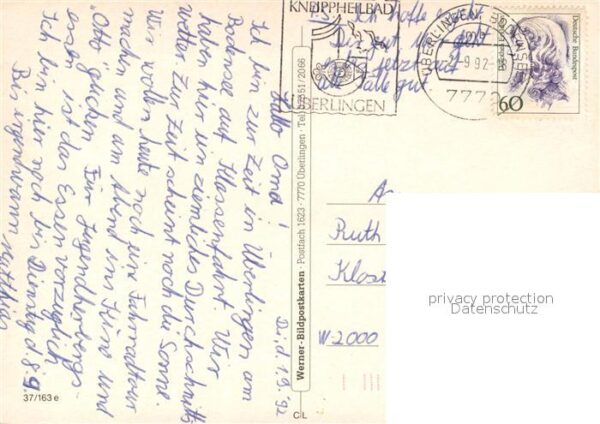 Di, d 1.9.'92
Hallo Omi!
Ich bin zur Zeit in Überlingen am
Bodensee auf Klassenfahrt. Wir
haben hier ein ziemliches Durchschnitts
wetter. Zur Zeit scheint noch die Sonne.
Wir wollen heute noch eine Fahrradtour
machen und am Abend ins Kino und
"Otto" gucken. Für Jugendherbergs-
essen ist das Essen vorzüglich
Ich bin hier noch bis Dienstag d. 8.9.
Bis irgendwann Matthias
P.S.: Ich hoffe
Dir geht
jetzt
gut.
KNEIPPHEILBAD
ÜBERLINGEN
ÜBERLINGEN, BODENSEE
-9.92-
7770
Deutsche Bundespost
60
An
Ruth
Klos
W-2000
Werner-Bildpostkarten · Postfach 1623 · 7770 Überlingen · Tel. 07551/2066
37/163 e
CL
privacy protection
Datenschutz